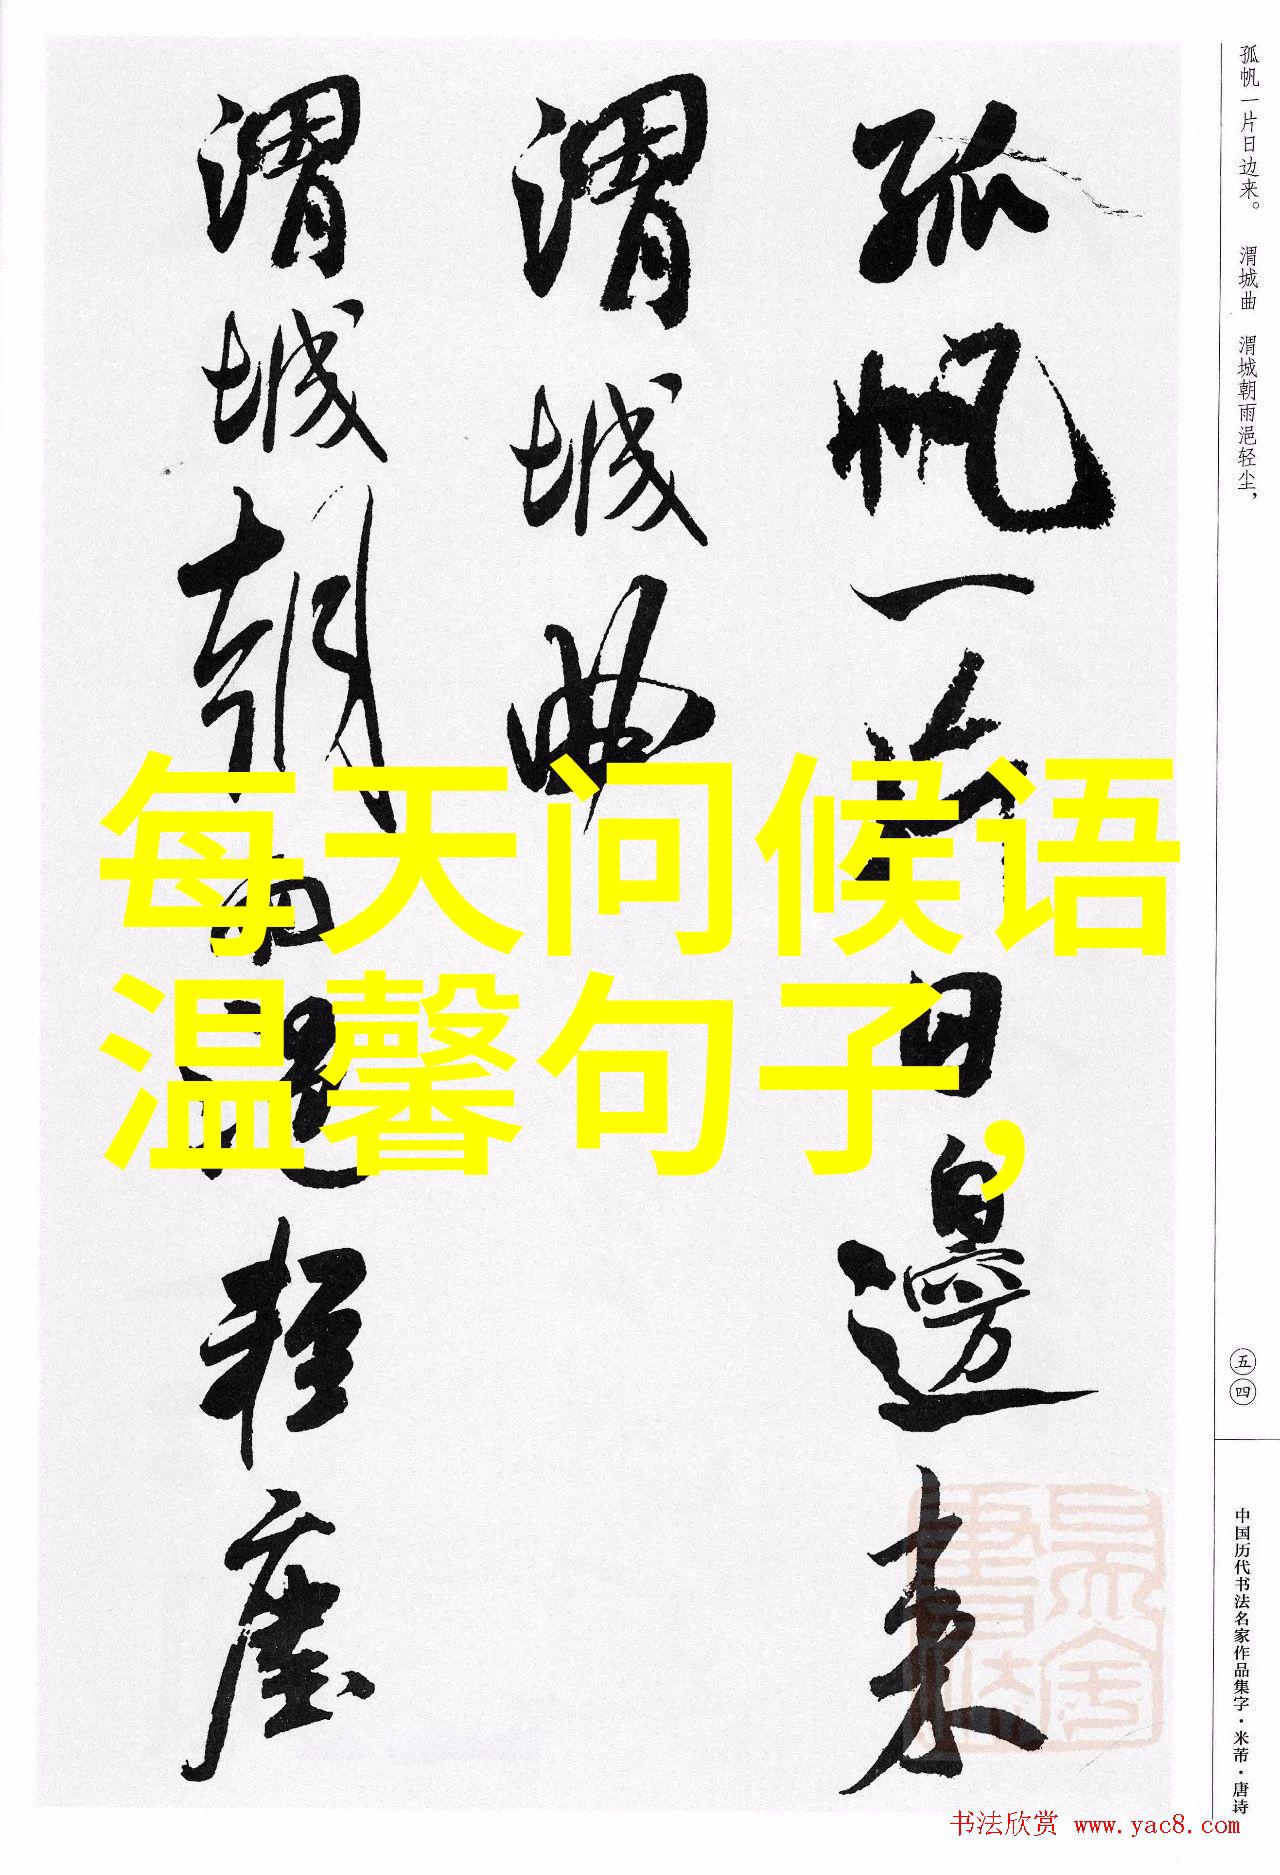 孤帆一片日边来。 渭城曲 渭城朝雨浥轻尘，
孤帆一片日邊来
渭城曲
渭城朝雨浥轻塵
每天问候语
温馨句子，
五四
中国历代书法名家作品集字·米芾·唐诗
书法欣赏 www.yac8.com